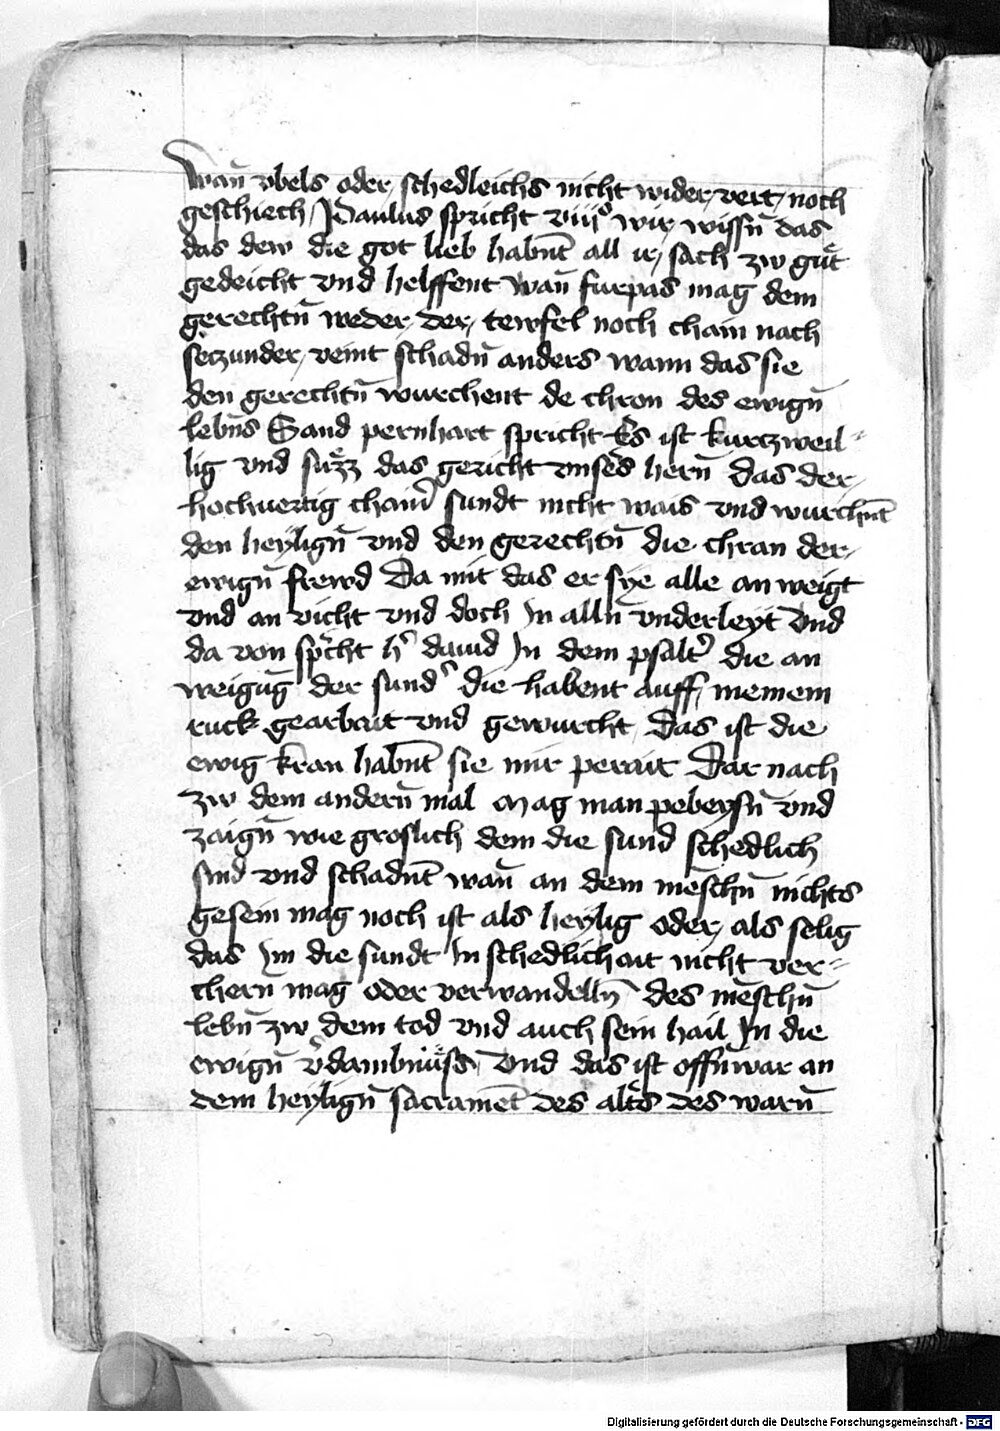 wan̄ vbels oder schedleichs nicht wider vert noch
geschiech Paulus spricht viijº wir wissn̄ das
das dem die got lieb habnt̄ all ir sach zw guͤt
gedeicht vnd helffent wan̄ furpas mag dem
gerechtn̄ weder der tewfel noch chain nach
seczunder veint schadn̄ anders wann das sie
den gerechtn̄ wurchent de chron des ewign̄
lebn̄s Sand pernhart spricht Es ist kurczweil=
lig vnd suͤzz das gericht vnsers hern̄ das der
hochuertig chain̄ sundt nicht wais vnd wurchnt̄
den heylign̄ vnd den gerechtn̄ die chran der
ewign̄ frewd Da mit das er sye alle an weigt
vnd an vicht vnd doch In alln̄ vnderleyt Vnd
da von spr̄cht h̄ dauid In dem psalt̄ die an
weigūg der sund̄ die habent auff meinem
ruck gearbait vnd gewurcht das ist die
ewig kran habnt̄ sie mir perait Dar nach
zw dem andern̄ mal mag man pebeysn̄ vnd
zaign̄ wie groslich dem die sund schedlich
sind vnd schadnt̄ wan̄ an dem mēschn̄ nichts
gesein mag noch ist als heylig oder als selig
das Im die sundt In schedlichait nicht ver=
chern̄ mag oder verwandelln̄ des mēschn̄
lebn̄ zw dem tod vnd auch sein hail In die
ewign̄ v̄dambnuͤss Vnd das ist offn̄war an
dem heylign̄ sacramēt des alt̄s des warn̄
Digitalisierung gefördert durch die Deutsche Forschungsgemeinschaft - DFG